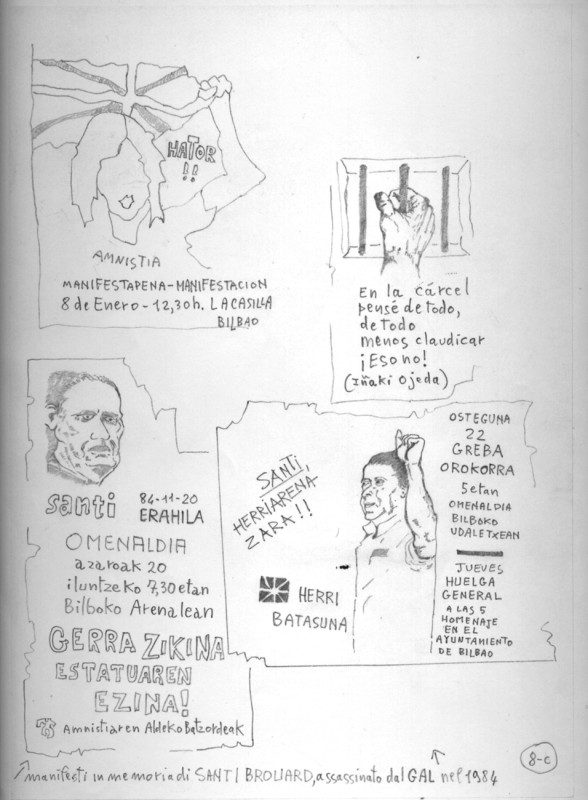 HATOR
!!
AMNISTIA
MANIFESTAPENA-MANIFESTACION
8 de Enero-12,30h. LA CASILLA
BILBAO
En la cárcel
pensé de todo,
de todo
menos claudicar
¡Eso no!
(Iñaki Ojeda)
santi 84-11-20
ERAHILA
OMENALDIA
azaroak 20
iluntzeko 7,30etan
Bilboko Arenalean
GERRA ZIKINA
ESTATUAREN
EZINA!
Amnistiaren Aldeko Batzordeak
SANTI,
HERRIARENA
ZARA!!
HERRI
BATASUNA
OSTEGUNA
22
GREBA
OROKORRA
5etan
OMENALDIA
BILBOKO
UDALETXEAN
JUEVES
HUELGA
GENERAL
A LAS 5
HOMENAJE
EN EL
AYUNTAMIENTO
DE BILBAO
8-c
manifesti in memoria di SANTI BROUARD, assassinato dal GAL nel 1984